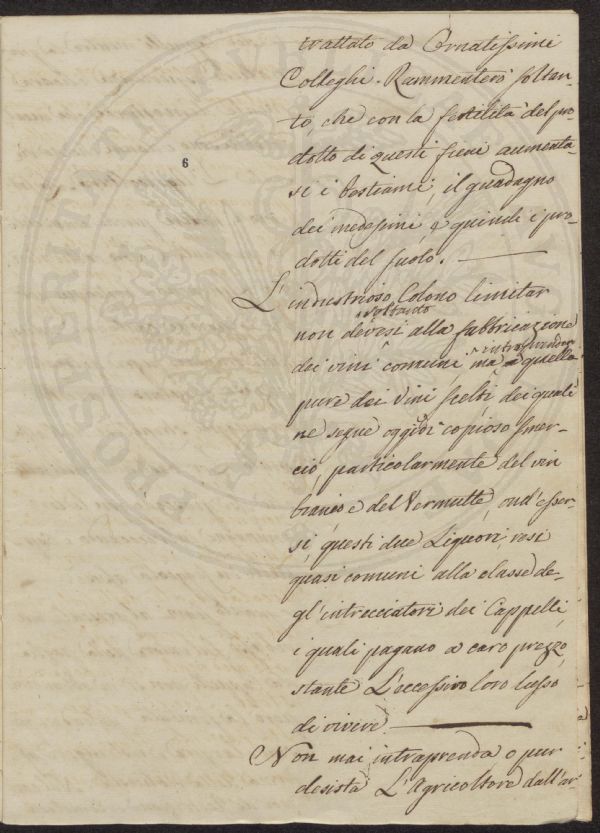 6
trattato da Ornatissimi
Colleghi. Rammenterò soltan-
to, che con la fertilità del pro-
dotto di questi fieni aumenta-
si i bestiami, il guadagno
dei medesimi, e quindi i pro-
dotti del suolo.
L'industrioso Colono limitar
non devesi soltanto alla fabbricazione
dei vini comuni ma a quella
pure dei Vini scelti, dei quali
ne segue oggidì copioso smer-
cio, particolarmente del vin
bianco e del Vermutte, ond'esser-
si, questi due Liquori, resi
quasi comuni alla classe de-
gl'intrecciatori dei Cappelli,
i quali pagano a caro prezzo,
stante L'eccessivo loro lusso
di vivere.
Non mai intraprenda, o pur
desista L'Agricoltore dall'ar-